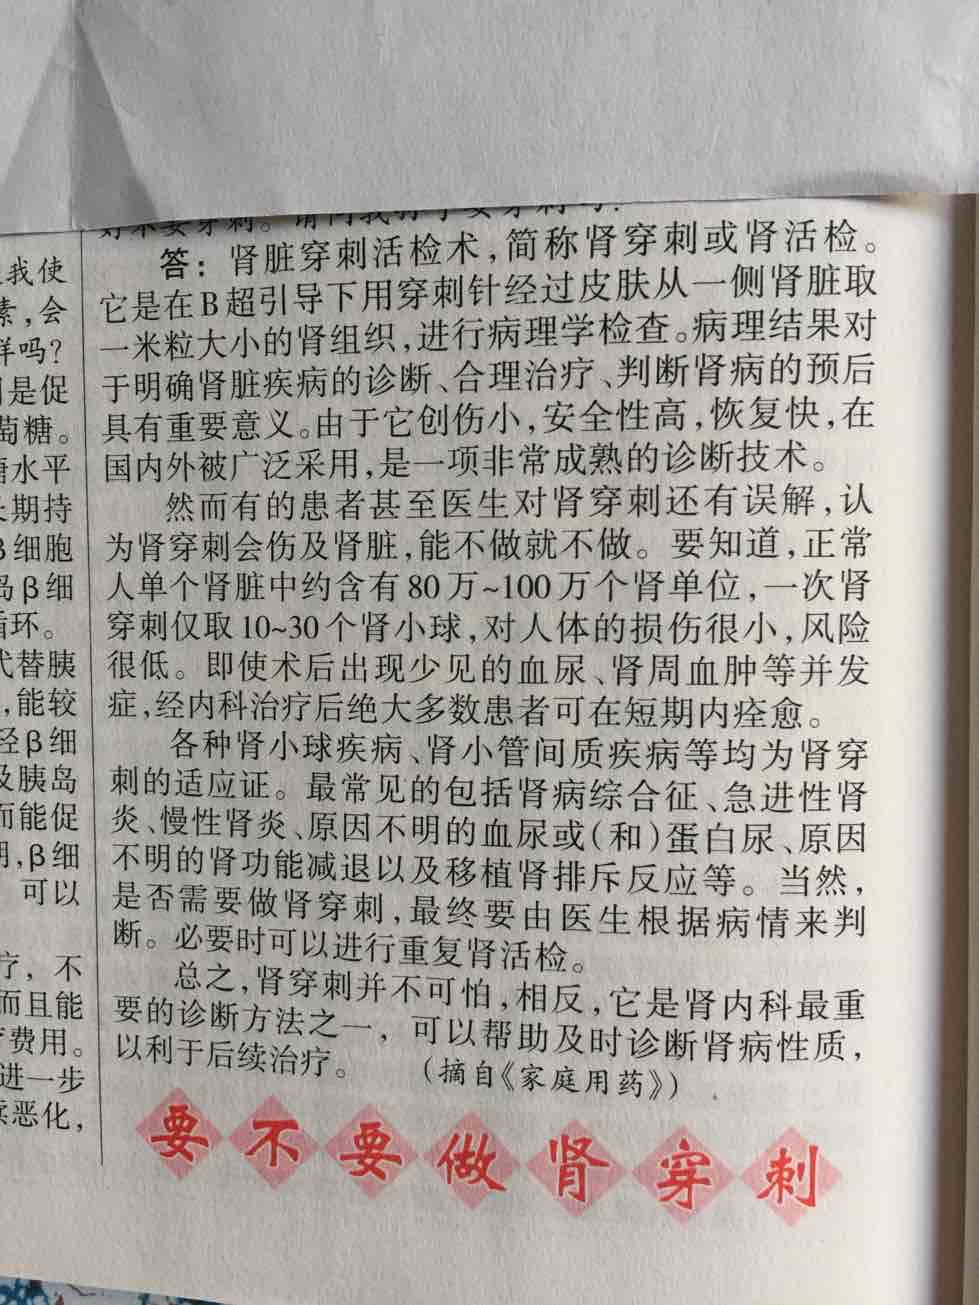 我使
素,会
样吗?
是促
萄糖。
糖水平
长期持
β细胞
岛β细
循环。
代替胰
,能较
轻β细
及胰岛
而能促
明,β细
可以
疗，不
而且能
费用。
进一步
续恶化,
答：肾脏穿刺活检术,简称肾穿刺或肾活检。
它是在B超引导下用穿刺针经过皮肤从一侧肾脏取
一米粒大小的肾组织,进行病理学检查。病理结果对
于明确肾脏疾病的诊断、合理治疗、判断肾病的预后
具有重要意义。由于它创伤小,安全性高,恢复快,在
国内外被广泛采用,是一项非常成熟的诊断技术。
然而有的患者甚至医生对肾穿刺还有误解,认
为肾穿刺会伤及肾脏,能不做就不做。要知道,正常
人单个肾脏中约含有80万~100万个肾单位,一次肾
穿刺仅取10~30个肾小球,对人体的损伤很小,风险
很低。即使术后出现少见的血尿、肾周血肿等并发
症,经内科治疗后绝大多数患者可在短期内痊愈。
各种肾小球疾病、肾小管间质疾病等均为肾穿
刺的适应证。最常见的包括肾病综合征、急进性肾
炎、慢性肾炎、原因不明的血尿或(和)蛋白尿、原因
不明的肾功能减退以及移植肾排斥反应等。当然,
是否需要做肾穿刺,最终要由医生根据病情来判
断。必要时可以进行重复肾活检。
总之,肾穿刺并不可怕,相反,它是肾内科最重
要的诊断方法之一，可以帮助及时诊断肾病性质,
以利于后续治疗。 (摘自《家庭用药》)
要不要做肾穿刺